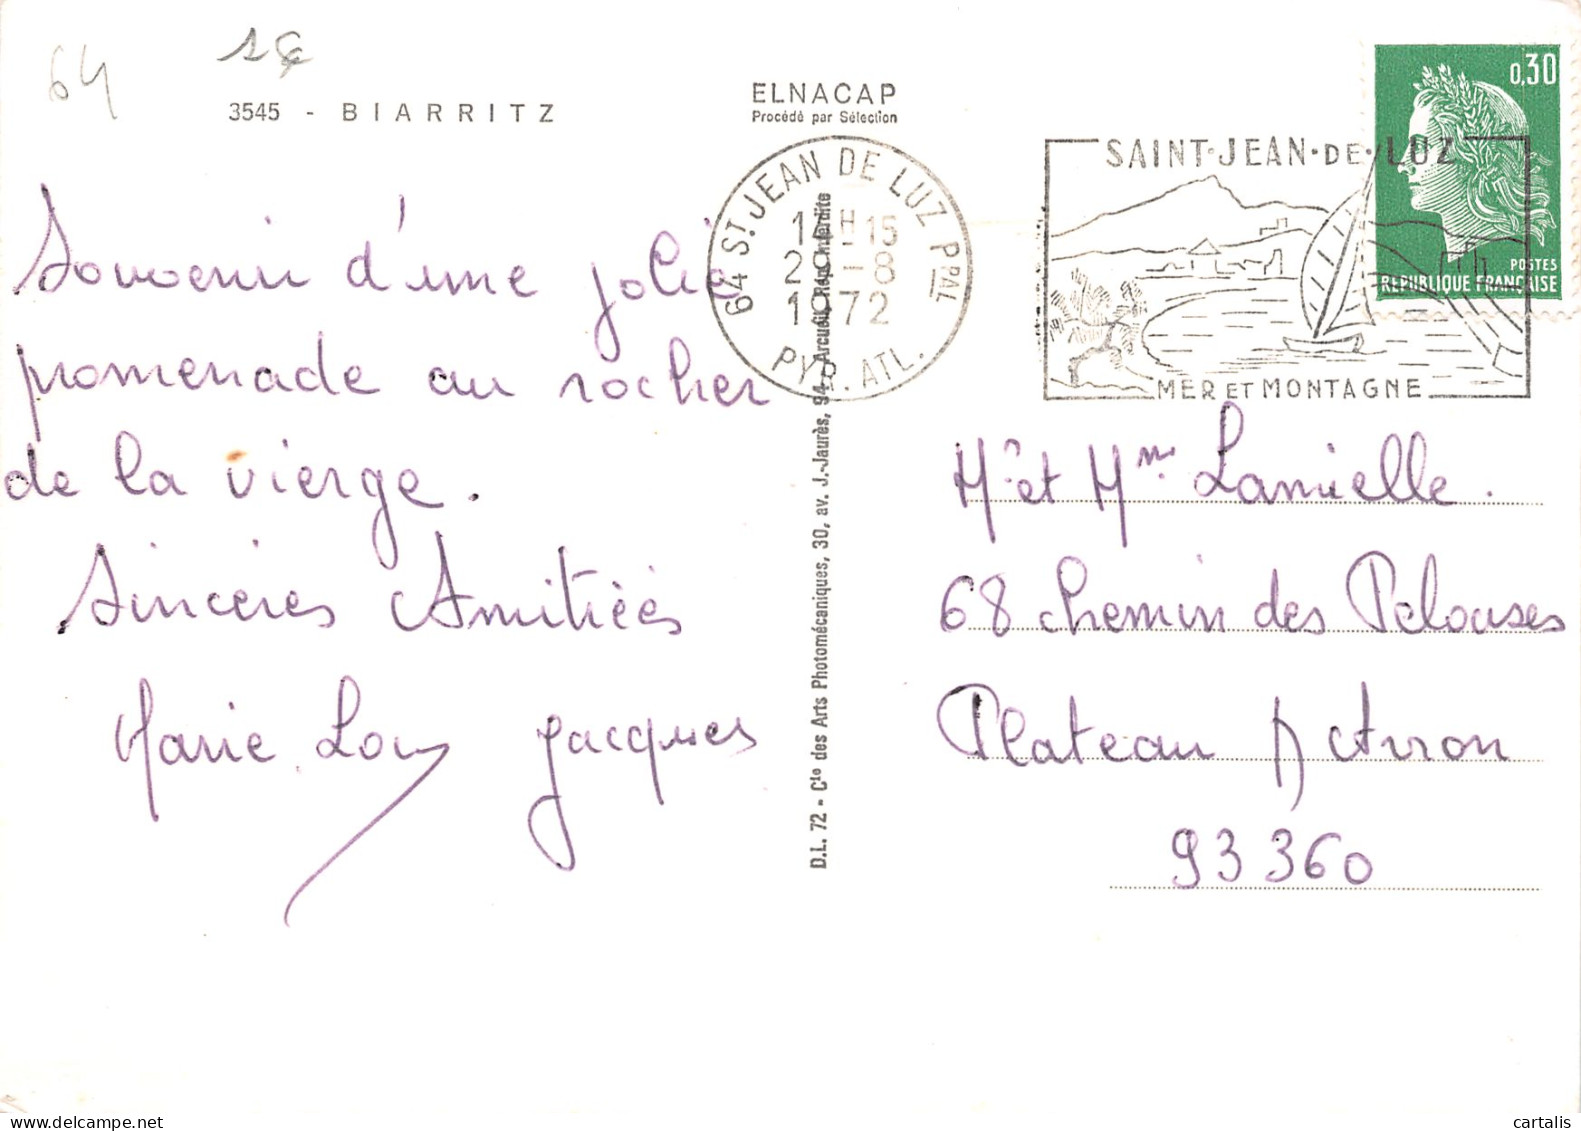 64
3545 - BIARRITZ
ELNACAP
Procédé par Sélection
0,30
POSTES
REPUBLIQUE FRANÇAISE
64 ST JEAN DE LUZ PPAL
14H15
-8
1972
PYR. ATL.
SAINT-JEAN-DE-LUZ
MER ET MONTAGNE
Souvenir d'une jolie
promenade au rocher
de la vierge.
Sincères Amitiés
Marie Lou Jacques
D.L. 72 - Cie des Arts Photomécaniques, 30, av. J.-Jaurès, 94-Arcueil Rep. Interdite
Mr et Mme Lamielle.
68 chemin des Pelouses
Plateau d'Avron
93360
delcampe.net
cartalis